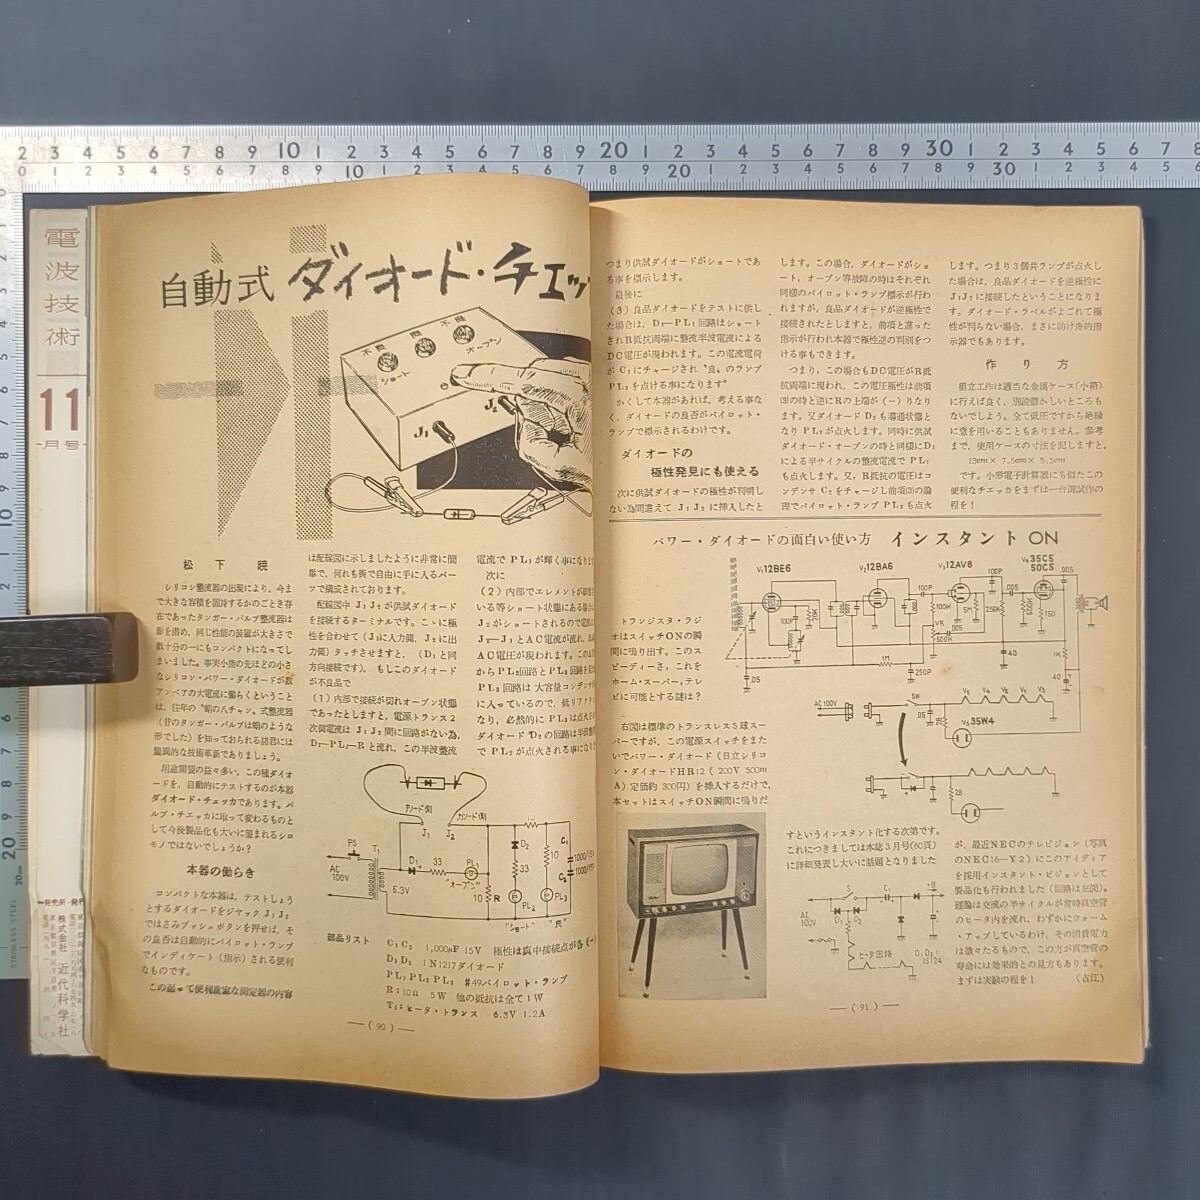 電波技術
11
月号
株式会社 近代科学社
自動式 ダイオード・チェッ
不良
不良
ショート
オープン
J₁
J₂
松下暁
シリコン整流器の出現により、今ま
で大きな容積を固持するかのごとき存
在であったタンガー・バルブ整流器は
影を潜め、同じ性能の装置が大きさで
数十分の一にもコンパクトになってし
まいました。事実小指の先ほどの小さ
なシリコン・パワー・ダイオードが数
アンペアの大電流に働くということ
は、往年の
形でした）を知っておられる諸君には
驚異的な技術革新でありましょう。
用途需要の益々多い、この種ダイオ
ードを、自動的にテストするのが本器
ダイオード・チェッカであります。バ
ルブ・チェッカに取って変わるものと
して今後製品化も大いに望まれるシロ
モノではないでしょうか？
本器の働らき
コンパクトな本器は、テストしょう
とするダイオードをジャック J₁J₂
ではさみプッシュボタンを押せば、そ
の良否は自動的にパイロット・ランプ
でインディケート（指示）される便利
なものです。
は配線図に示しましたように非常に簡
単で、何れも街で自由に手に入るパー
ツで構成されております。
配線図中 J₁J₂ が供試ダイオード
を接続するターミナルです。こゝに極
性を合わせて（J₁に入力側、J₂に出
力側）タッチさせますと、（D₁と同
方向接続です）。もしこのダイオード
が不良品で
（1）内部で接続が切れオープン状態
であったとしますと、電源トランス2
次側電流は J₁J₂ 間に回路がない為、
D₁－PL₁－R と流れ、この半波整流
電流で PL₁ が輝く事になります
次に
（2）内部でエレメントが
いる等ショート状態にある場合
J₂ がショートされるので電流は
J₂－J₁とAC電流が流れ、
AC電圧が現われます。この
から PL₂回路と PL₃回路を
PL₃ 回路は大容量コンデンサ
に入っているので、低リアクタ
なり、必然的に PL₃ は点火
ダイオード D₂の回路は半波整流
で PL₂ が点火される事になり
アノード側
カソード側
J₁
J₂
PS
AC
100V
T₁
6.3V
D₁
33
PL₁
"オープン"
10
R
D₂
33
PL₂
"ショート"
15
10
PL₃
"良"
C₁
1000/15V
C₂
部品リスト
C₁C₂ 1,000μF 15V 極性は真中接続点が各（ー）
D₁D₂ 1N1217ダイオード
PL₁PL₂PL₃ #49パイロット・ランプ
R：10Ω 5W 他の抵抗は全て1W
T₁：ヒータ・トランス 6.3V 1.2A
—(90)—
つまり供試ダイオードがショートであ
る事を標示します。
最後に
（3）良品ダイオードをテストに供し
た場合は、D₁－PL₁回路はショート
されR抵抗両端に整流半波電流による
DC電圧が現われます。この電流電荷
が C₁ にチャージされ〝良〟のランプ
PL₃ を点ける事になります。
かくして本器があれば、考える事な
く、ダイオードの良否がパイロット・
ランプで標示されるわけです。
ダイオードの
極性発見にも使える
次に供試ダイオードの極性が判明し
ない為間違えて J₁J₂ に挿入したと
します。この場合、ダイオードがショ
ート、オープン等故障の時はそれぞれ
同様のパイロット・ランプ標示が行わ
れますが、良品ダイオードが逆極性で
接続されたとしますと、前項と違った
指示が行われ本器で極性逆の判別をつ
ける事もできます。
つまり、この場合もDC電圧がR抵
抗両端に現われ、この電圧極性は前項
(3)の時と逆にRの上端が（－）りなり
ます。又ダイオード D₂も導通状態と
なり PL₂ が点火します。同時に供試
ダイオード・オープンの時と同様にD₁
による半サイクルの整流電流で PL₁
も点火します。又、R抵抗の電圧はコ
ンデンサ C₂ をチャージし前項(3)の論
理でパイロット・ランプ PL₃ も点火
します。つまり3個共ランプが点火し
た場合は、良品ダイオードを逆極性に
J₁J₂ に接続したということになりま
す。ダイオード・ラベルがよごれて極
性が判らない場合、まさに助け舟的指
示器でもあります。
作り方
組立工作は適当な金属ケース（小箱）
に行えば良く、別段難かしいところも
ないでしょう。全て低圧ですから絶縁
に意を用いることもありません。参考
まで、使用ケースの寸法を記しますと、
13cm×7.5cm×5.5cm
です。小形電子計算器にも似たこの
便利なチェッカをまずは一台御試作の
程を！
パワー・ダイオードの面白い使い方 インスタント ON
トランジスタ・ラジ
オはスイッチONの瞬
間に鳴り出す。このス
ピーディーさ、これを
ホーム・スーパー、テレ
ビに可能とする謎は？
右図は標準のトランスレス5球スー
パーですが、この電源スイッチをまた
いでパワー・ダイオード（日立シリコ
ン・ダイオードHR12（200V 500m
A）定価約300円）を挿入するだけで、
本セットはスイッチON瞬間に鳴りだ
V₁12BE6
V₂12BA6
V₃12AV8
V₄35C5
50C5
V₅35W4
AC100V
SW
V₃
V₁
V₂
V₄
すというインスタント化する次第です。
これにつきましては本誌3月号(60頁)
に詳細発表し大いに話題となりました
が、最近NECのテレビジョン（写真
のNEC16－Y2）にこのアイディア
を採用インスタント・ビジョンとして
製品化も行われました（回路は左図）。
理論は交流の半サイクルが常時真空管
のヒータ内を流れ、わずかにウォーム
・アップしているわけ、その消費電力
は微々たるもので、この方が真空管の
寿命には効果的との見方もあります。
まずは実験の程を！ （古江）
AC
100V
S
D₁
D₂
C₁
C₂
+B
ヒータ回路
—(91)—